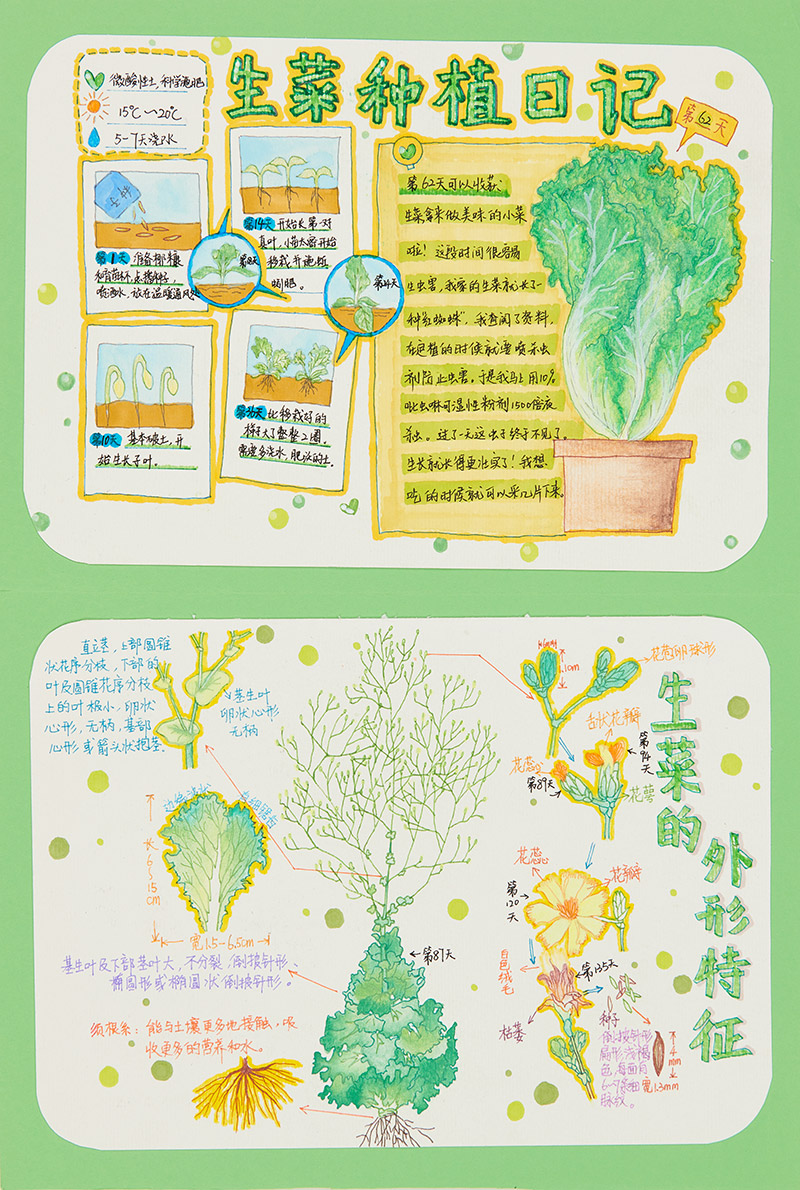 生菜种植日记
微酸性土,科学施肥
15℃~20℃
5-7天浇水
第62天
第1天 准备椰糠
和育苗杯,点播种子,
喷洒水,放在温暖通风处
第14天 开始长第一对
真叶,小苗太密开始
移栽并施短
期肥。
第10天 基本破土,开
始生长子叶。
比移栽好的
样子大了整整2圈,
需要多浇水,肥沃的土。
第62天可以收获
生菜拿来做美味的小菜
啦!这段时间很容易
生虫害,我家的生菜就长了一
种“红蜘蛛”,我查阅了资料,
在定植的时候就要喷杀虫
剂防止虫害。于是我马上用10%
吡虫啉可湿性粉剂1500倍液
杀虫。过了一天这虫子终于不见了。
生长就长得更壮实了!我想
吃的时候就可以采几片下来。
生菜的
外形特征
直立茎,上部圆锥
状花序分枝,下部的
叶及圆锥花序分枝
上的叶极小,卵状
心形,无柄,基部
心形或箭头状抱茎。
茎生叶
卵状心形
无柄
长
6~15
cm
宽1.5-6.5cm
基生叶及下部茎叶大,不分裂,倒披针形、
椭圆形或椭圆状倒披针形。
须根系:能与土壤更多地接触,吸
收更多的营养和水。
第87天
花苞卵球形
舌状花瓣
第94天
花蕊
第89天
花萼
花蕊
花瓣
第120天
白色绒毛
第135天
枯萎
种子
倒披针形
扁形,浅褐
色,每面有
6~7条细
脉纹。
4mm
宽1.3mm